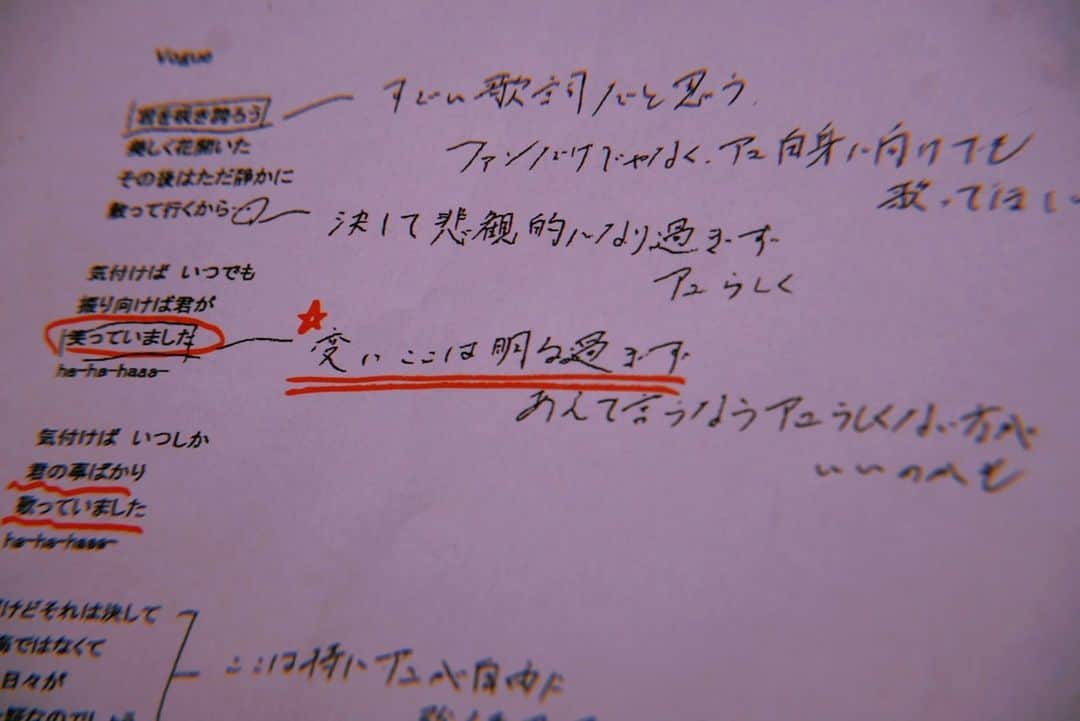 Vogue
君を咲き誇ろう
すごい歌詞だと思う
美しく花開いた
ファンだけじゃなく、アユ自身に向けても
その後はただ静かに
歌ってほしい
散って行くから…
決して悲観的になり過ぎず
アユらしく
気付けば いつでも
振り向けば君が
笑っていました
変にここは明る過ぎず
ha-ha-haaa-
あえて言うならアユらしくない方が
いいのかも
気付けば いつしか
君の事ばかり
歌っていました
ha-ha-haaa-
けどそれは決して
ではなくて
日々が
ここは特にアユが自由に
なのでしょう